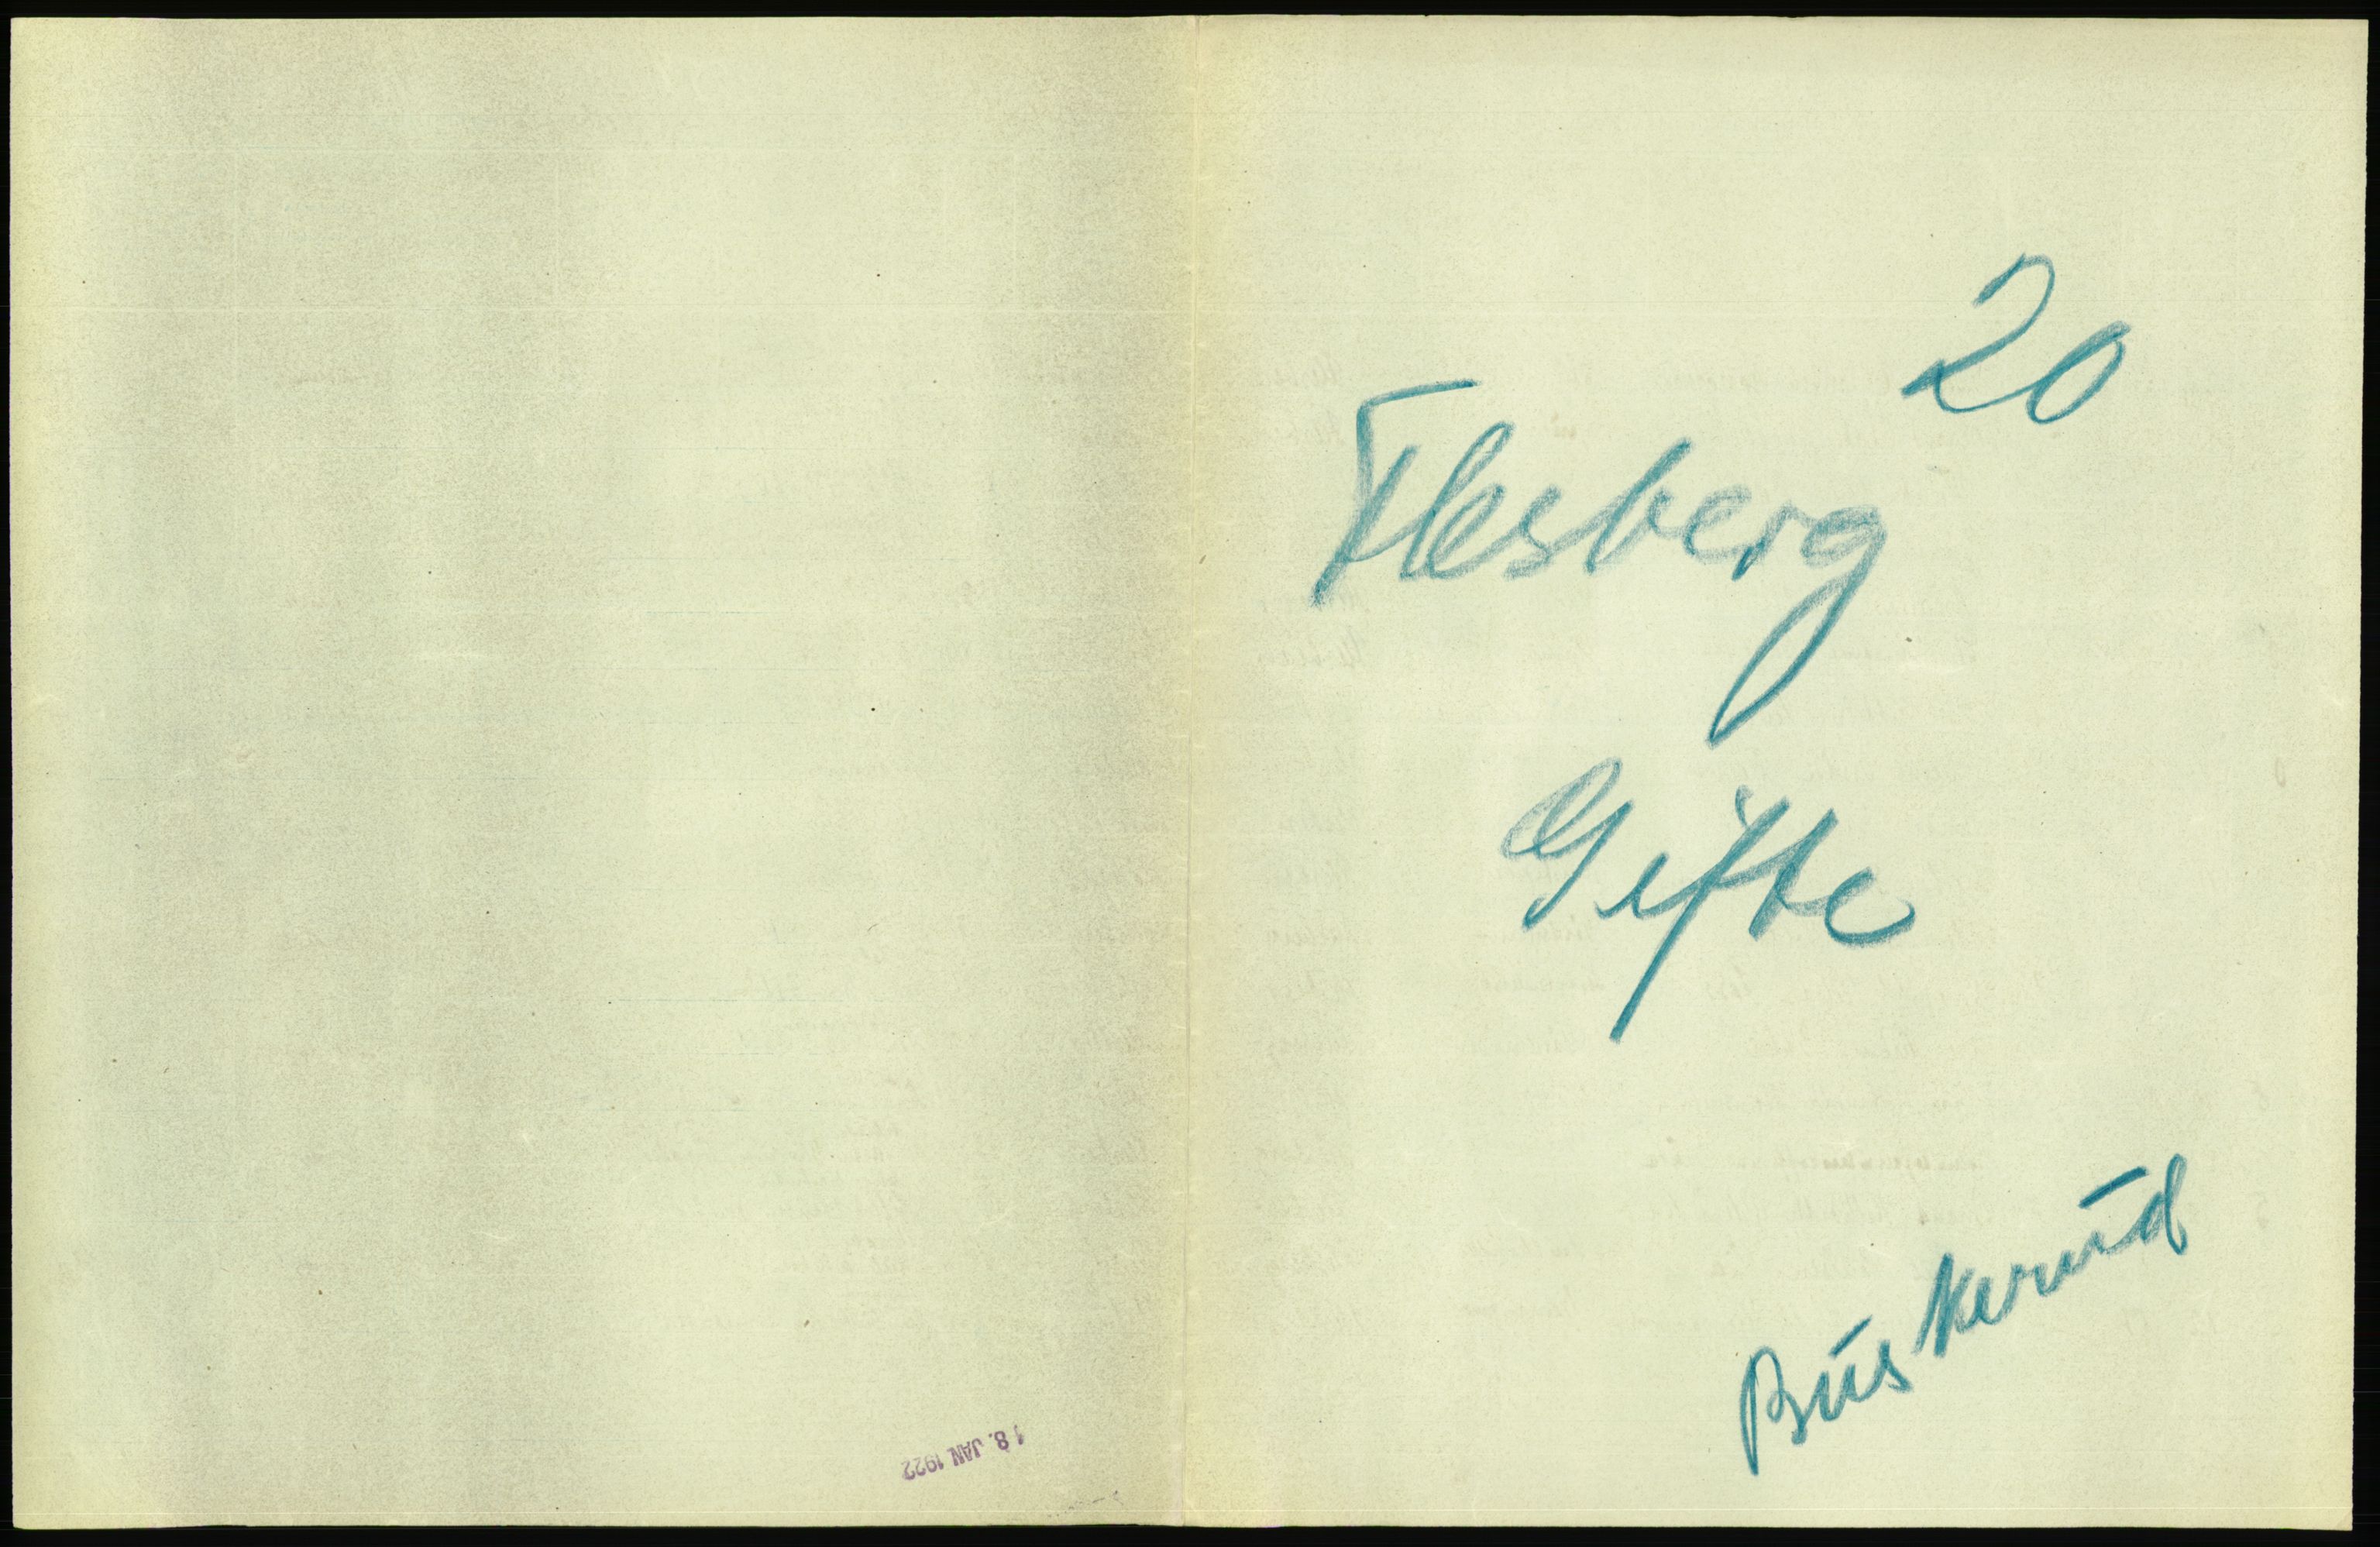 18. JAN 1922
20
Flesberg
Gifte
Buskerud